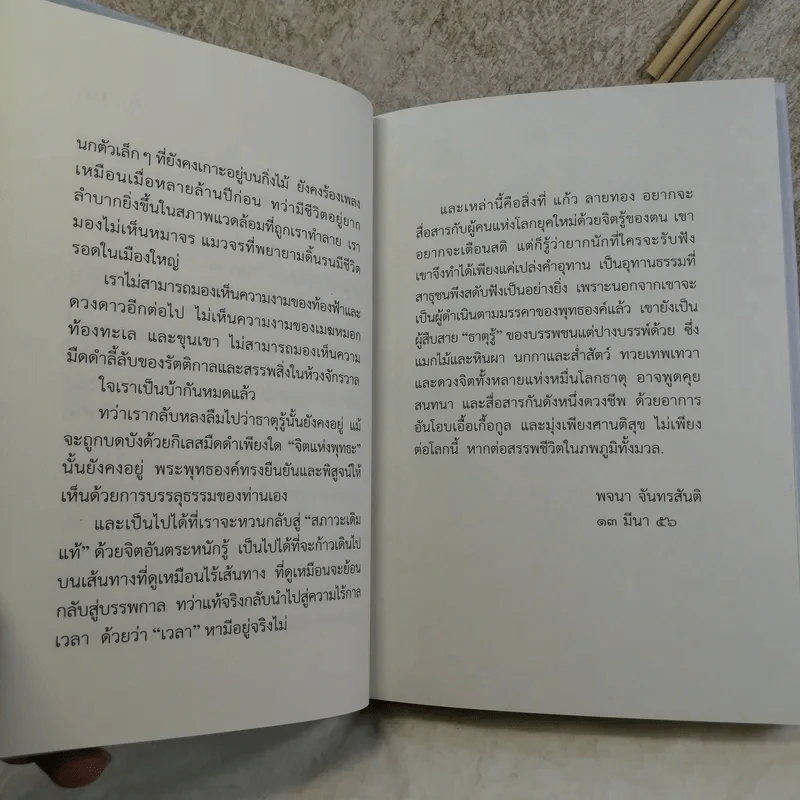 นกตัวเล็ก ๆ ที่ยังคงเกาะอยู่บนกิ่งไม้ ยังคงร้องเพลง
เหมือนเมื่อหลายล้านปีก่อน ทว่ามีชีวิตอยู่ยาก
ลำบากยิ่งขึ้นในสภาพแวดล้อมที่ถูกเราทำลาย เรา
มองไม่เห็นหมาจร แมวจรที่พยายามดิ้นรนมีชีวิต
รอดในเมืองใหญ่
เราไม่สามารถมองเห็นความงามของท้องฟ้าและ
ดวงดาวอีกต่อไป ไม่เห็นความงามของเมฆหมอก
ท้องทะเล และขุนเขา ไม่สามารถมองเห็นความ
มืดดำลี้ลับของรัตติกาลและสรรพสิ่งในห้วงจักรวาล
ใจเราเป็นบ้ากันหมดแล้ว
ทว่าเรากลับหลงลืมไปว่าธาตุรู้นั้นยังคงอยู่ แม้
จะถูกบดบังด้วยกิเลสมืดดำเพียงใด “จิตแห่งพุทธะ”
นั้นยังคงอยู่ พระพุทธองค์ทรงยืนยันและพิสูจน์ให้
เห็นด้วยการบรรลุธรรมของท่านเอง
และเป็นไปได้ที่เราจะหวนกลับสู่ “สภาวะเดิม
แท้” ด้วยจิตอันตระหนักรู้ เป็นไปได้ที่จะก้าวเดินไป
บนเส้นทางที่ดูเหมือนไร้เส้นทาง ที่ดูเหมือนจะย้อน
กลับสู่บรรพกาล ทว่าแท้จริงกลับนำไปสู่ความไร้กาล
เวลา ด้วยว่า “เวลา” หามีอยู่จริงไม่
และเหล่านี้คือสิ่งที่ แก้ว ลายทอง อยากจะ
สื่อสารกับผู้คนแห่งโลกยุคใหม่ด้วยจิตรู้ของตน เขา
อยากจะเตือนสติ แต่ก็รู้ว่ายากนักที่ใครจะรับฟัง
เขาจึงทำได้เพียงแค่เปล่งคำอุทาน เป็นอุทานธรรมที่
สาธุชนพึงสดับฟังเป็นอย่างยิ่ง เพราะนอกจากเขาจะ
เป็นผู้ดำเนินตามมรรคาของพุทธองค์แล้ว เขายังเป็น
ผู้สืบสาย “ธาตุรู้” ของบรรพชนแต่ปางบรรพ์ด้วย ซึ่ง
แมกไม้และหินผา นกกาและส่ำสัตว์ ทวยเทพเทวา
และดวงจิตทั้งหลายแห่งหมื่นโลกธาตุ อาจพูดคุย
สนทนา และสื่อสารกันดังหนึ่งดวงชีพ ด้วยอาการ
อันโอบเอื้อเกื้อกูล และมุ่งเพียงศานติสุข ไม่เพียง
ต่อโลกนี้ หากต่อสรรพชีวิตในภพภูมิทั้งมวล.
พจนา จันทรสันติ
๑๓ มีนา ๕๖